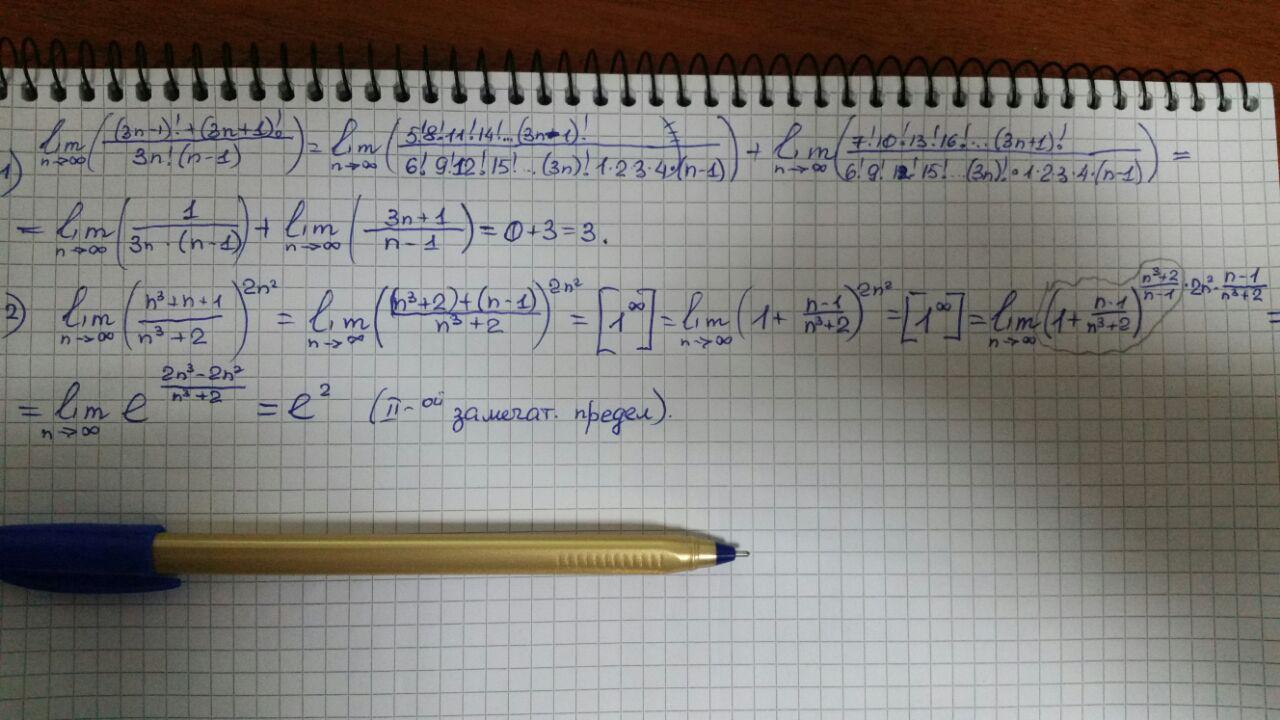 1) lim n→∞ ((3n-1)!+(3n+1)! / 3n!(n-1)) = lim n→∞ (5!8!11!14!...(3n-1)! / 6!9!12!15!...(3n)!1·2·3·4·(n-1)) + lim n→∞ (7!10!13!16!...(3n+1)! / 6!9!12!15!...(3n)!·1·2·3·4·(n-1)) =
= lim n→∞ (1 / 3n·(n-1)) + lim n→∞ (3n+1 / n-1) = 0+3=3.
2) lim n→∞ (n³+n+1 / n³+2)^2n² = lim n→∞ ((n³+2)+(n-1) / n³+2)^2n² = [1^∞] = lim n→∞ (1+ n-1 / n³+2)^2n² = [1^∞] = lim n→∞ (1+ n-1 / n³+2)^(n³+2 / n-1 · 2n² · n-1 / n³+2) =
= lim n→∞ e^(2n³-2n² / n³+2) = e² (II-ой замечат. предел).